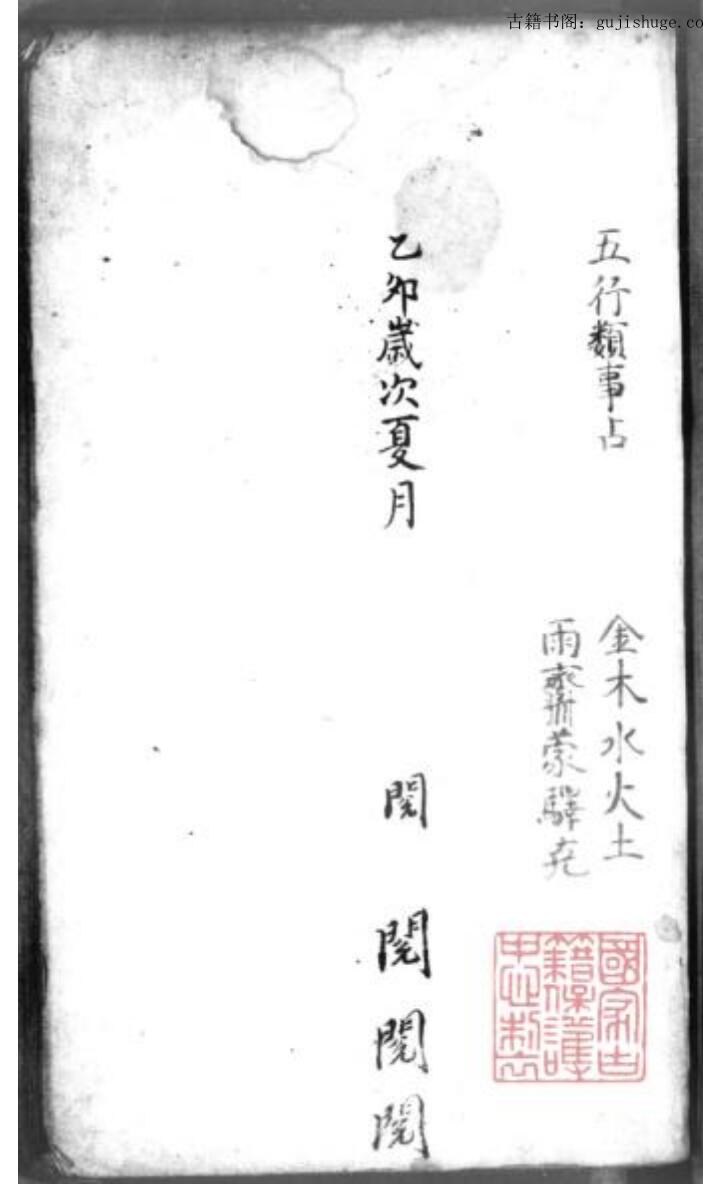 古籍书阁：gujishuge.co
五行類事占
金木水火土
雨霽蒙驛克
乙卯歲次夏月
閱
閱
閱
閱
國家古
籍保護
中心制